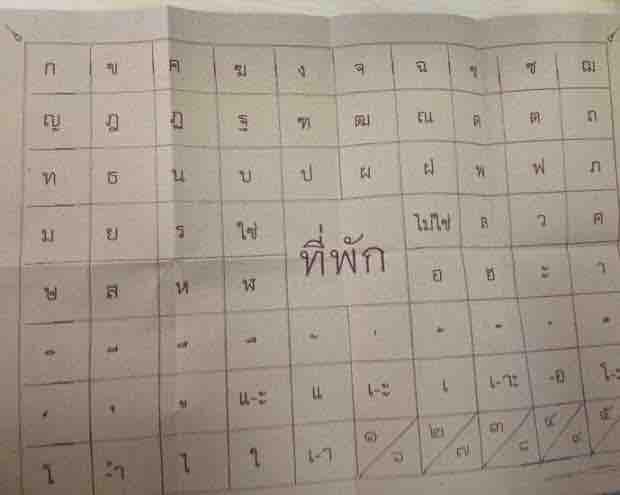 ก ข ค ฆ ง จ ฉ ช ซ ฌ
ญ ฎ ฏ ฐ ฑ ฒ ณ ด ต ถ
ท ธ น บ ป ผ ฝ พ ฟ ภ
ม ย ร ใช่ ไม่ใช่ ล ว ศ
ที่พัก
ษ ส ห ฬ อ ฮ ะ า
แ-ะ แ เ-ะ เ เ-าะ -อ โ-ะ
โ -ำ ไ ใ เ-า ๑ ๖ ๒ ๗ ๓ ๘ ๔ ๙ ๕